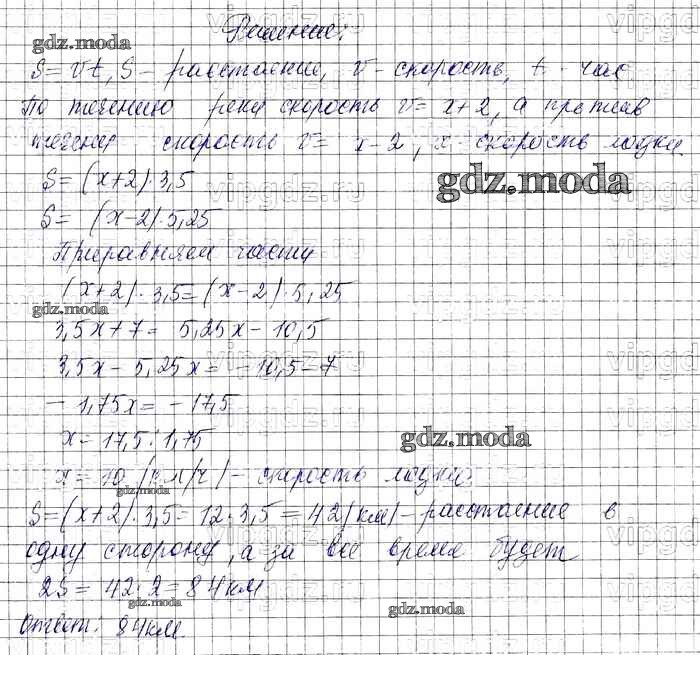 Решение:
S = Vt, S - расстояние, V - скорость, t - час
По течению реки скорость V = x+2, а против
течения скорость V = x-2, x - скорость лодки
S = (x+2)·3,5
S = (x-2)·5,25
Приравняем части
(x+2)·3,5 = (x-2)·5,25
3,5x+7 = 5,25x-10,5
3,5x-5,25x = -10,5-7
-1,75x = -17,5
x = 17,5:1,75
x = 10 (км/ч) - скорость лодки.
S = (x+2)·3,5 = 12·3,5 = 42 (км) - расстояние в
одну сторону, а за все время будет
2S = 42·2 = 84 км
Ответ: 84 км.
gdz.moda
gdz.moda
gdz.moda
gdz.moda
gdz.moda
gdz.moda
gdz.moda
vipgdz.ru